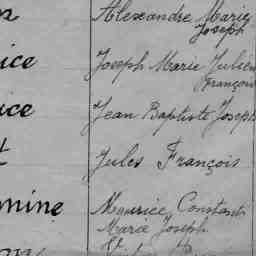 Alexandre Marie
Joseph
ice
Joseph Marie Julien
François
ice
Jean Baptiste Joseph
t
Jules François
mine
Maurice Constant
Marie Joseph